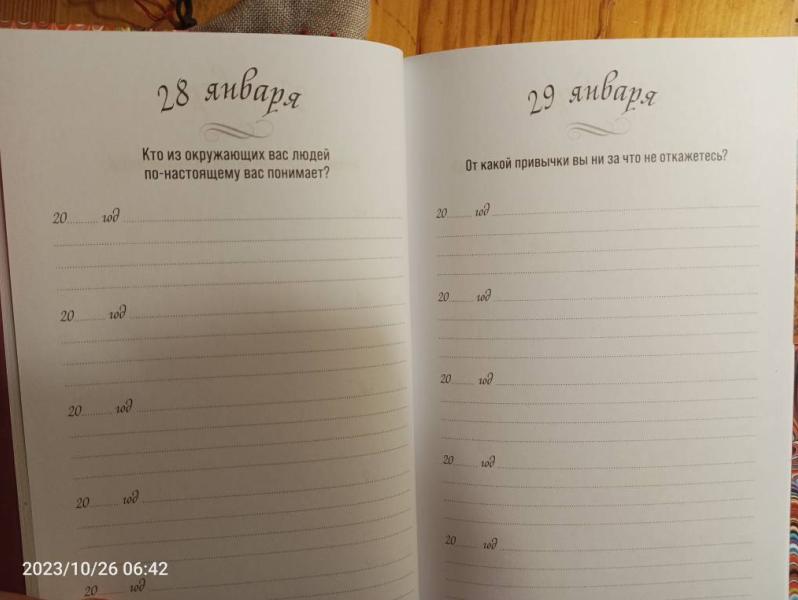 28 января
Кто из окружающих вас людей
по-настоящему вас понимает?
20........ год
20........ год
20........ год
20........ год
20........ год
29 января
От какой привычки вы ни за что не откажетесь?
20........ год
20........ год
20........ год
20........ год
20........ год
2023/10/26 06:42